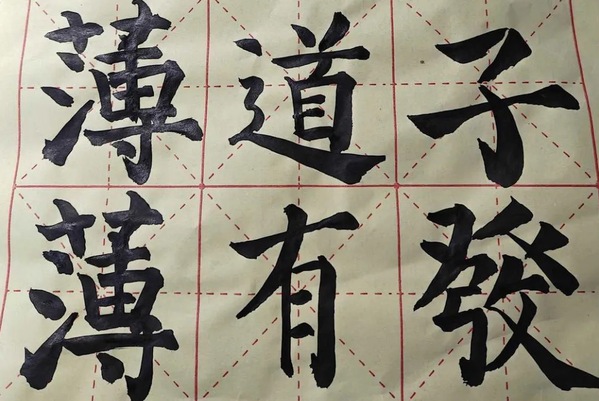 子發
道有
薄薄